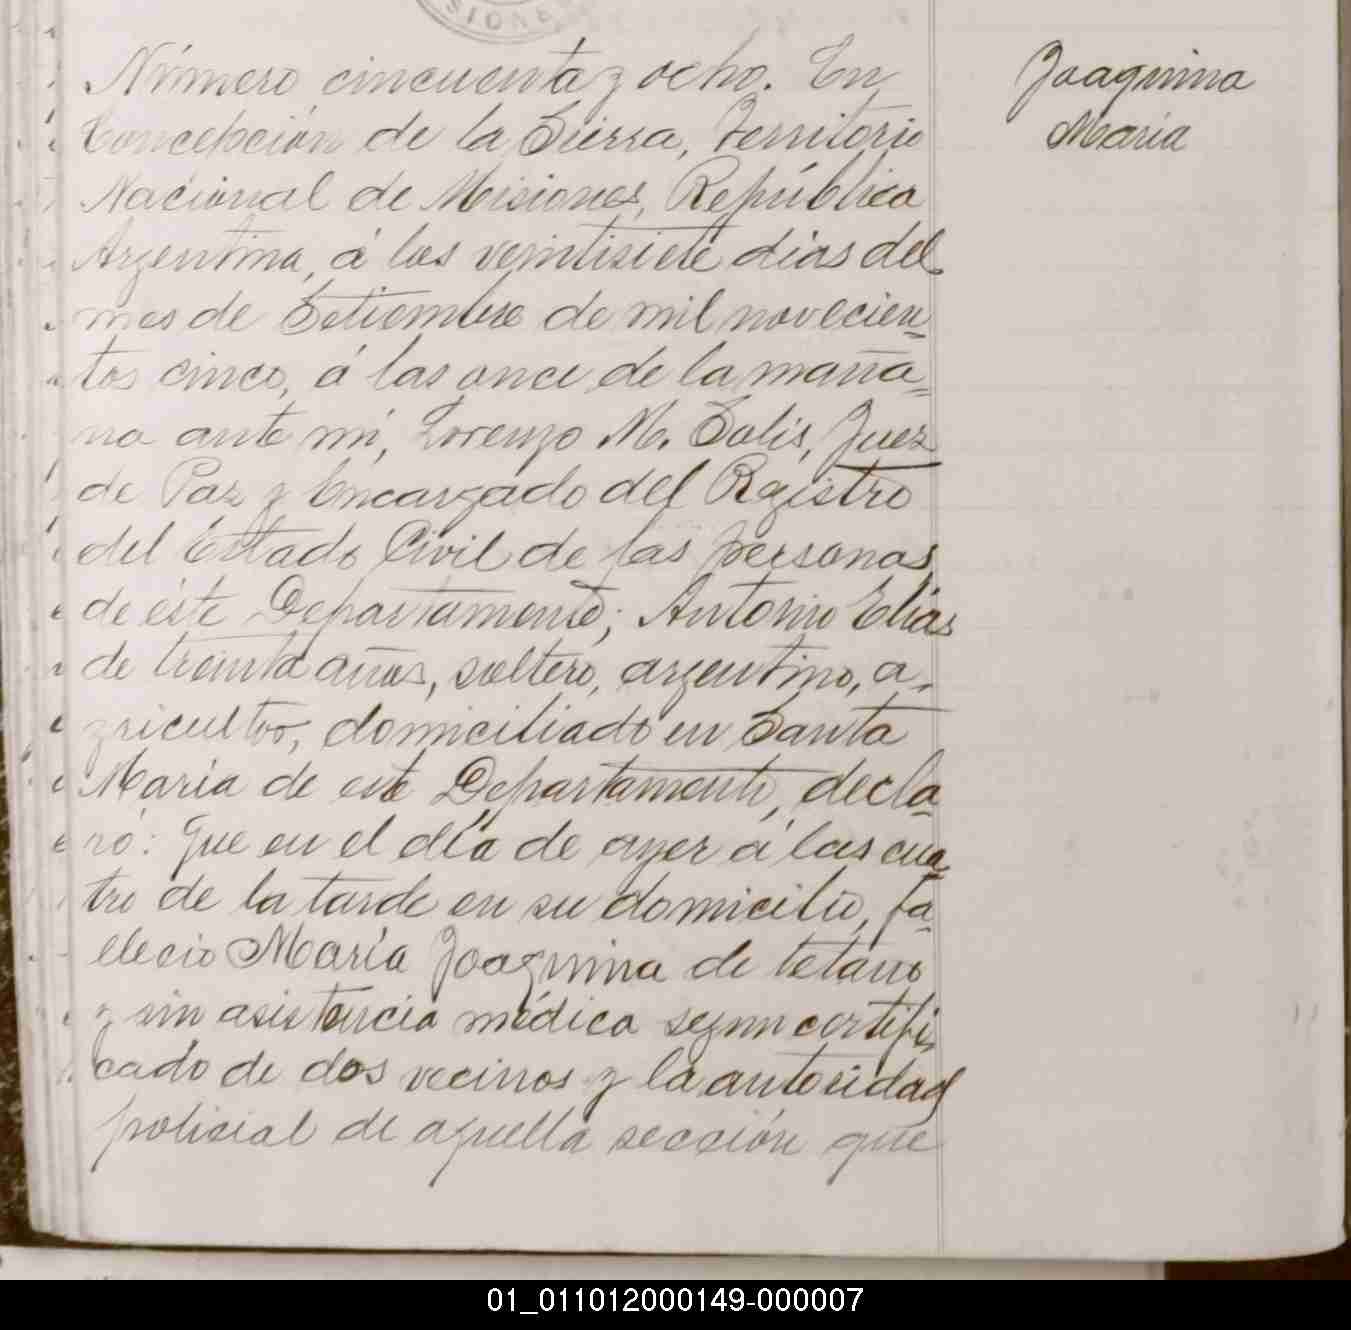 SIONE
Número cincuenta y ocho. En
Concepción de la Sierra, Territorio
Nacional de Misiones, República
Argentina, á los veintisiete dias del
mes de Setiembre de mil novecien=
tos cinco, á las once de la maña=
na ante mi, Lorenzo M. Solis, Juez
de Paz y Encargado del Rgistro
del Estado Civil de las personas
de éste Departamento; Antonio Elias
de treinta años, soltero, argentino, a-
gricultor, domiciliado en Santa
Maria de este Departamento, decla-
ró: Que en el día de ayer á las cua-
tro de la tarde en su domicilio, fa-
llecio María Joaquina de tetano
y sin asistencia médica segun certifi-
cado de dos vecinos y la autoridad
policial de aquella sección que
Joaquina
Maria
01_011012000149-000007